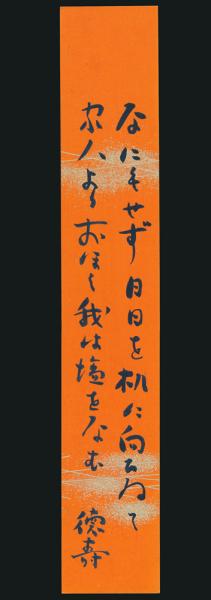 なにもせず月日を机に向ひゐて
家人よりおほく我は塩をなむ
徳壽